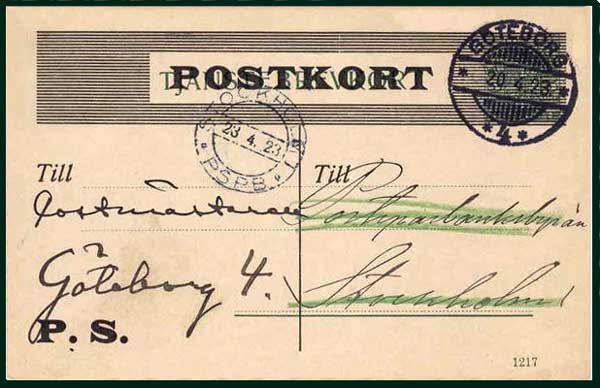 POSTKORT
TJÄNSTEBREVKORT
GÖTEBORG
20.4.23.
*4*
STOCKHOLM 1
23.4.23
PSPB
Till
Postmästaren
Göteborg 4.
P. S.
Till
Postsparbanksbyrån
Stockholm
1217